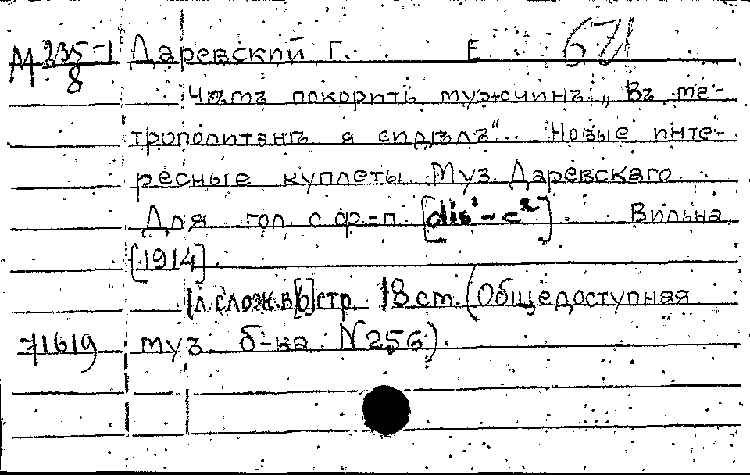 М 335-1 Даревский Г. Е 671
8
Чѣмъ покорить мужчинъ „Въ ме-
трополитенѣ я сидѣлъ". Новые инте-
ресные куплеты. Муз. Даревскаго.
Для гол. с ф-п. [dis¹-c²]. Вильна
[1914].
1 л. слож. в [6] стр. 18 cm. (Общедоступная
71619 муз. б-ка. N 256).